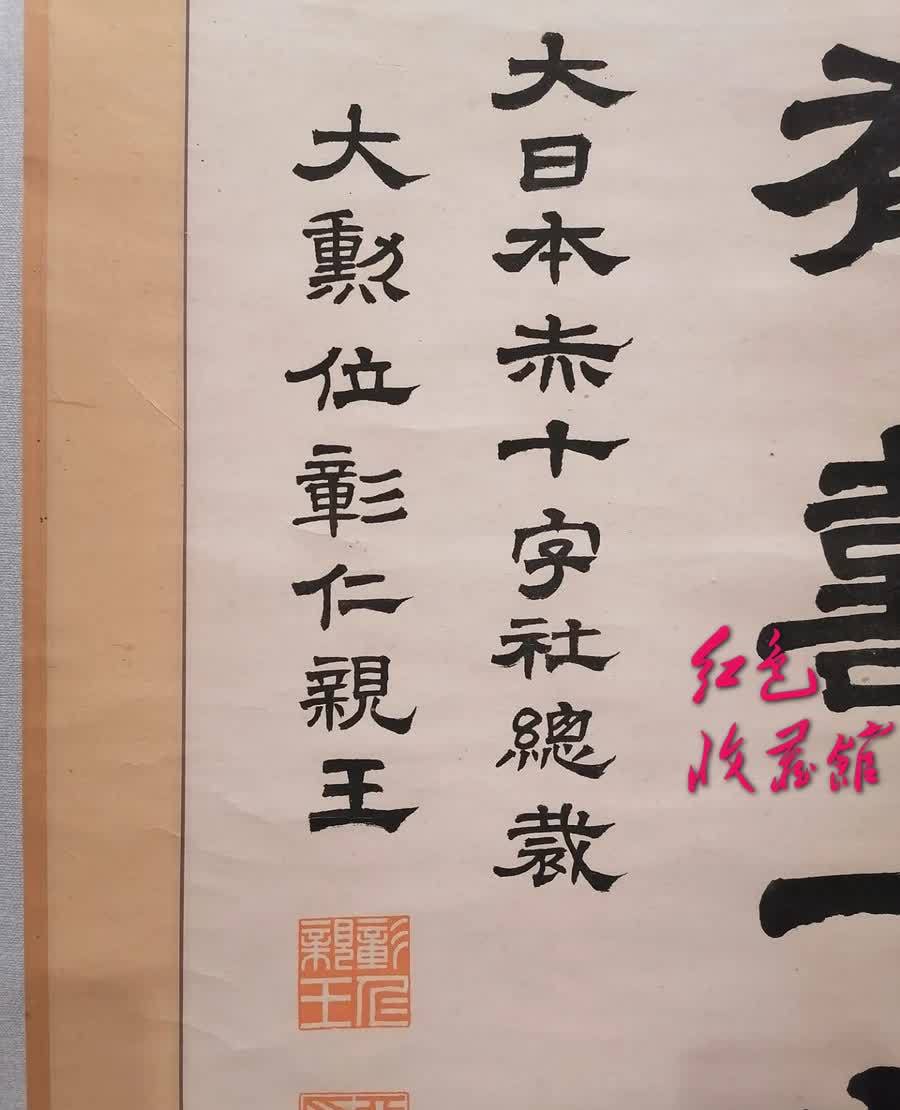 大日本赤十字社總裁
大勲位彰仁親王
彰仁
親王
红色
收藏館